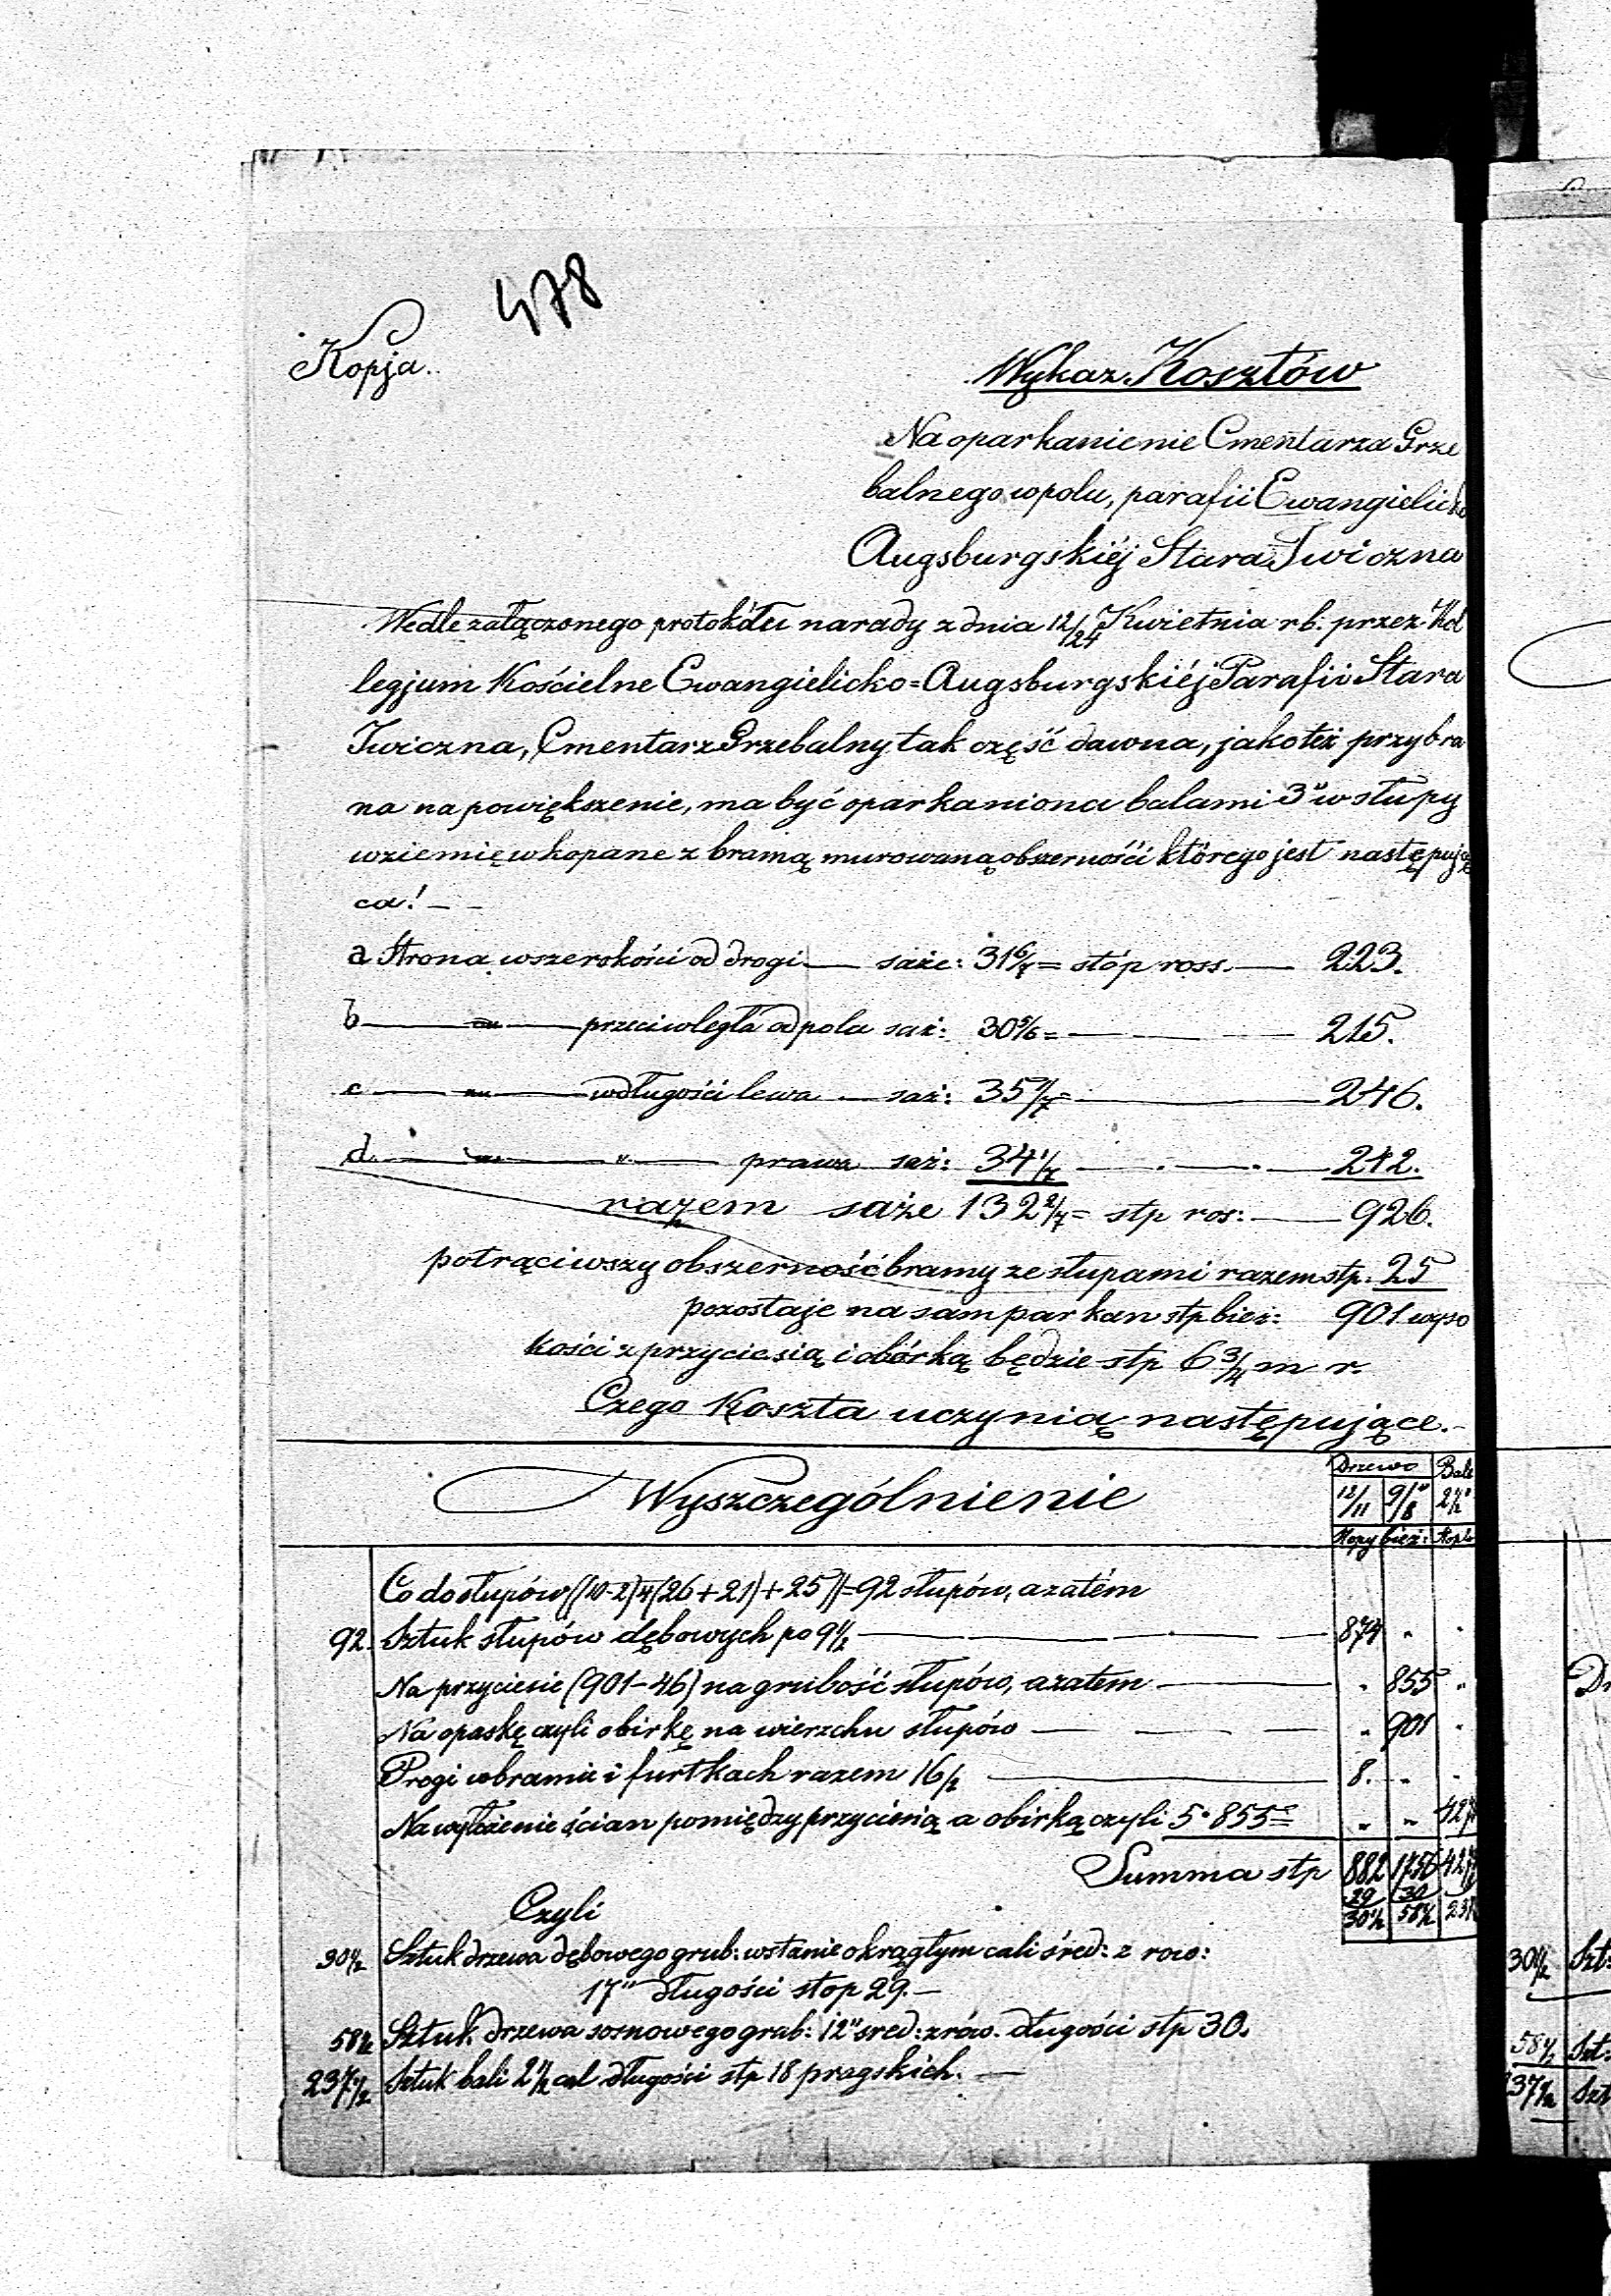 478
Kopja.
Wykaz Kosztów
Na oparkanienie Cmentarza Grze
balnego w polu, parafii Ewangielicko
Augsburgskiéj Stara Iwiczna
Wedle załączonego protokółu narady z dnia 12/24 Kwietnia r b. przez Kol
legjum Kościelne Ewangielicko=Augsburgskiéj Parafii Stara
Iwiczna, Cmentarz Grzebalny tak część dawna, jako też przybra
na na powiększenie, ma być oparkaniona balami 3" w słupy
w ziemię wkopane z bramą murowaną obszerności którego jest następują
ca! — —
a Strona w szerokości od drogi — saże: 31 6/7 = stóp ross. — 223.
b — " — przeciwległa od pola saż: 30 5/6 = — 215.
c — " — w długości lewa — saż: 35 1/7 = — 246.
d. — " — " — prawa saż: 34 1/7 — 242.
razem saże 132 2/7 = stp ros: — 926.
potrąciwszy obszerność bramy ze słupami razem stp: 25
pozostaje na sam parkan stp bież: 901 wyso
kości z przyciesią i obórką będzie stp 6 3/4 m r.
Czego Koszta uczynią następujące.—
Wyszczególnienie
Drzewo Bale
12/11 9/8" 2 1/2"
Kopy bież: Kop
Co do słupów ((10-2)+(26+21)+25))=92 słupów, azatém
92. Sztuk słupów dębowych po 9 1/2 — 874 " "
Na przyciesie (901-46) na grubość słupów, azatem — " 855 "
Na opaskę czyli obirkę na wierzchu słupów — " 901 "
Progi w bramie i furtkach razem 16/2 — 8. " "
Na wyłożenie ścian pomiędzy przyciesią a obirką czyli 5•855= " " 427
Summa stp 882 1756 427
29 30
Czyli 30 1/2 58 1/2 237
30 1/2 Sztuk drzewa dębowego grub: w stanie okrągłym cali śred: z rów:
17" długości stop 29.—
58 1/2 Sztuk drzewa sosnowego grub: 12" sred: z rów. długości stp 30.
237 1/2 Sztuk bali 2 1/2 cal długości stp 18 pragskich. —
30 1/2 Szt:
58 1/2 Szt:
237 1/2 Szt